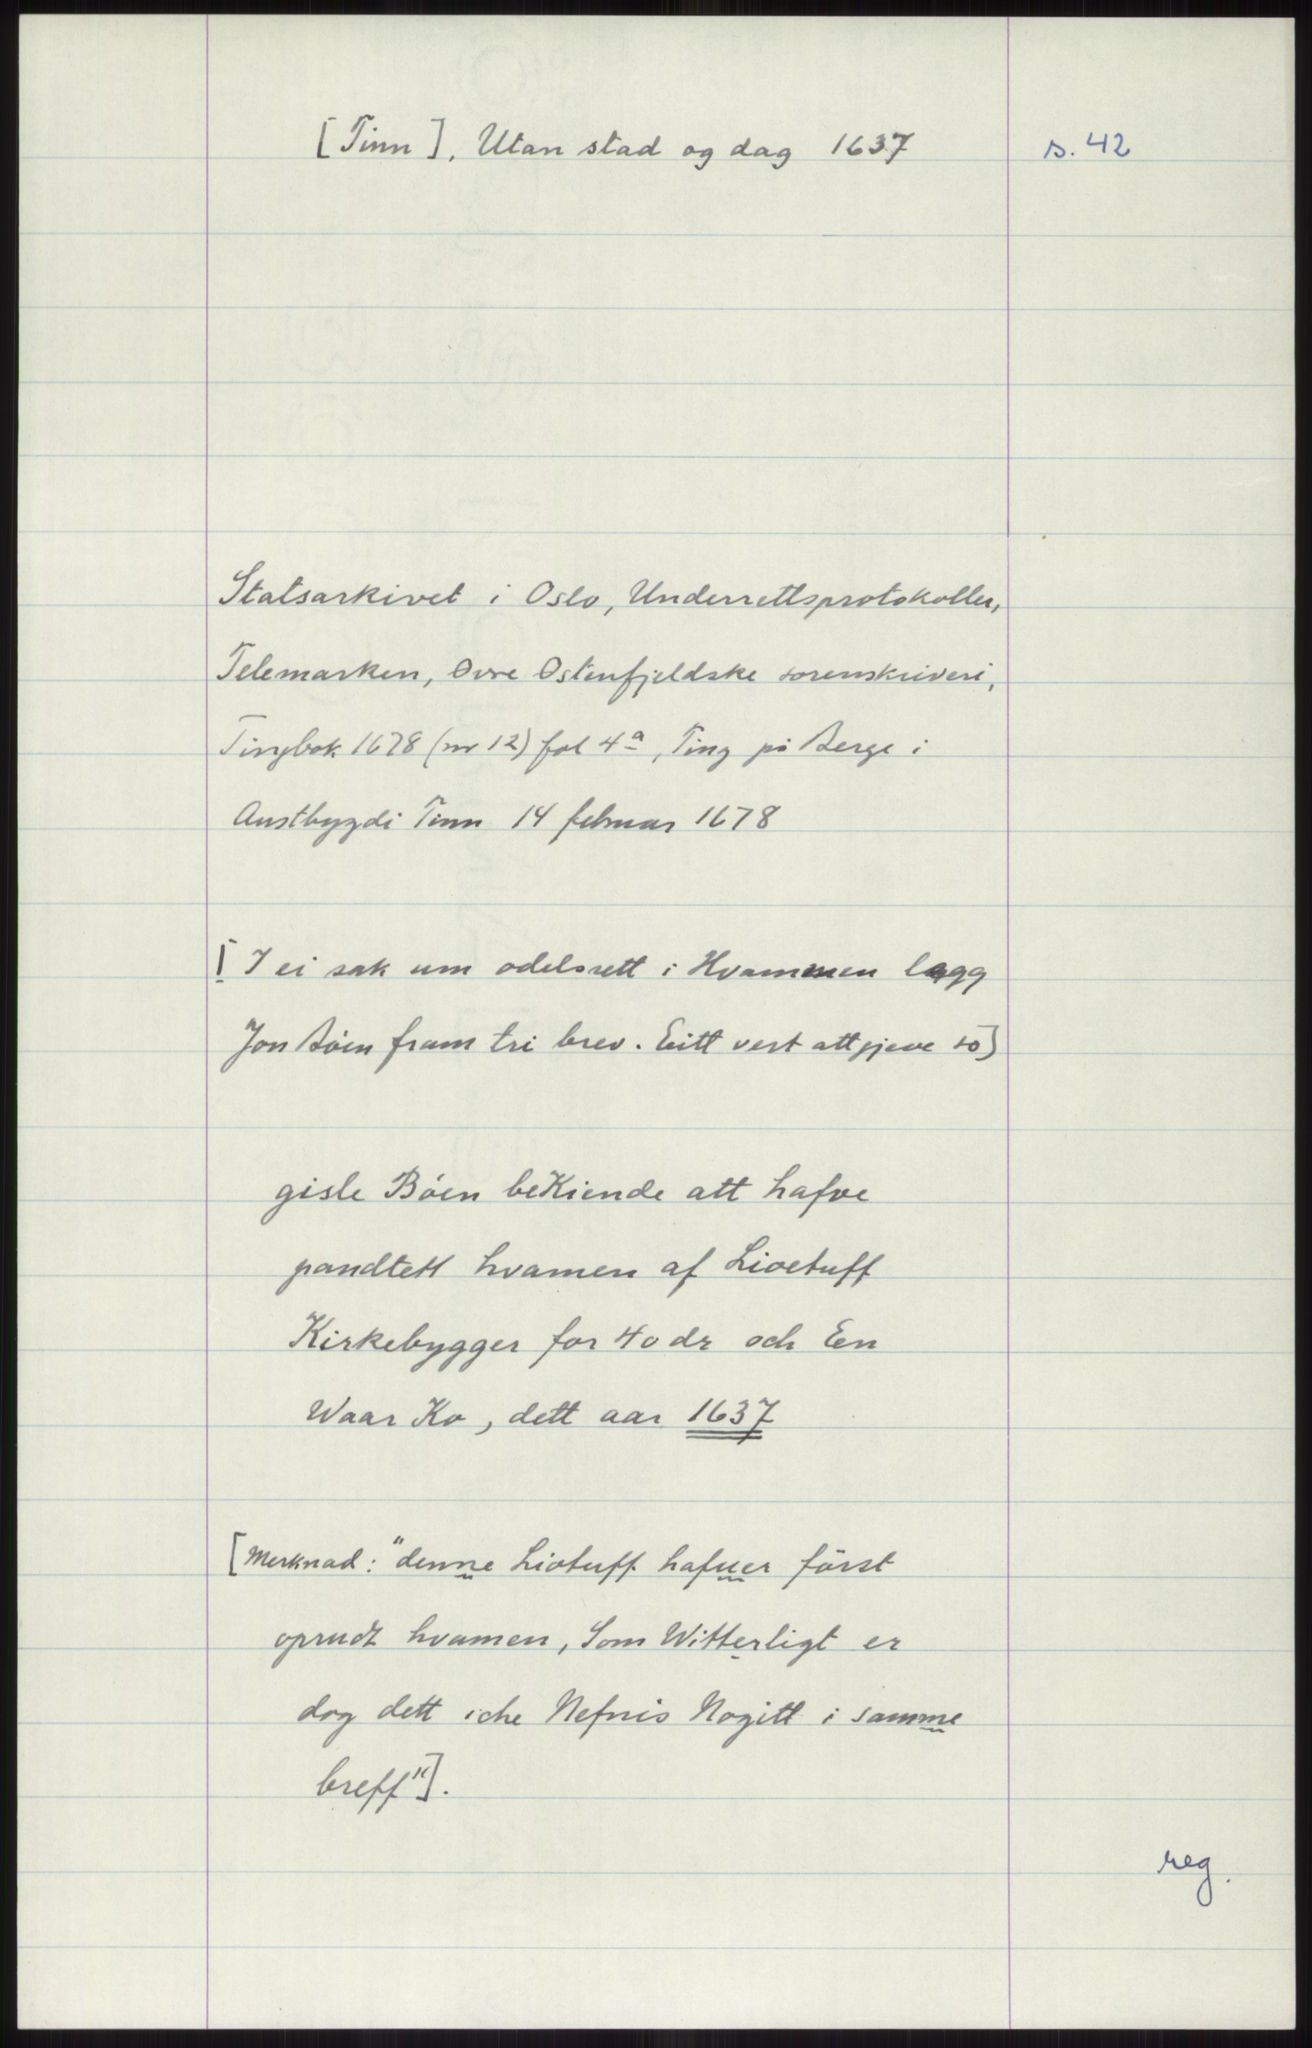 [Tinn], Utan stad og dag 1637
s. 42
Statsarkivet i Oslo, Underrettsprotokoller,
Telemarken, Øvre Østenfjeldske sorenskriveri,
Tingbok 1678 (nr 12) fol 4a, Ting på Berge i
Austbygdi Tinn 14 februar 1678
[I ei sak um odelsrett i Hvammen lagg
Jon Bøen fram tri brev. Eitt vert attgjeve so]
gisle Bøen beKiende att hafve
pandtett hvamen af Livetuff
Kirkebygger for 40 dr och Een
Waar Ko, dett aar 1637
[Merknad: "denne Liotuff hafuer först
oprudt hvamen, Som Witterligt er
dog dett iche Nefnis Nogitt i samme
breff"].
reg.